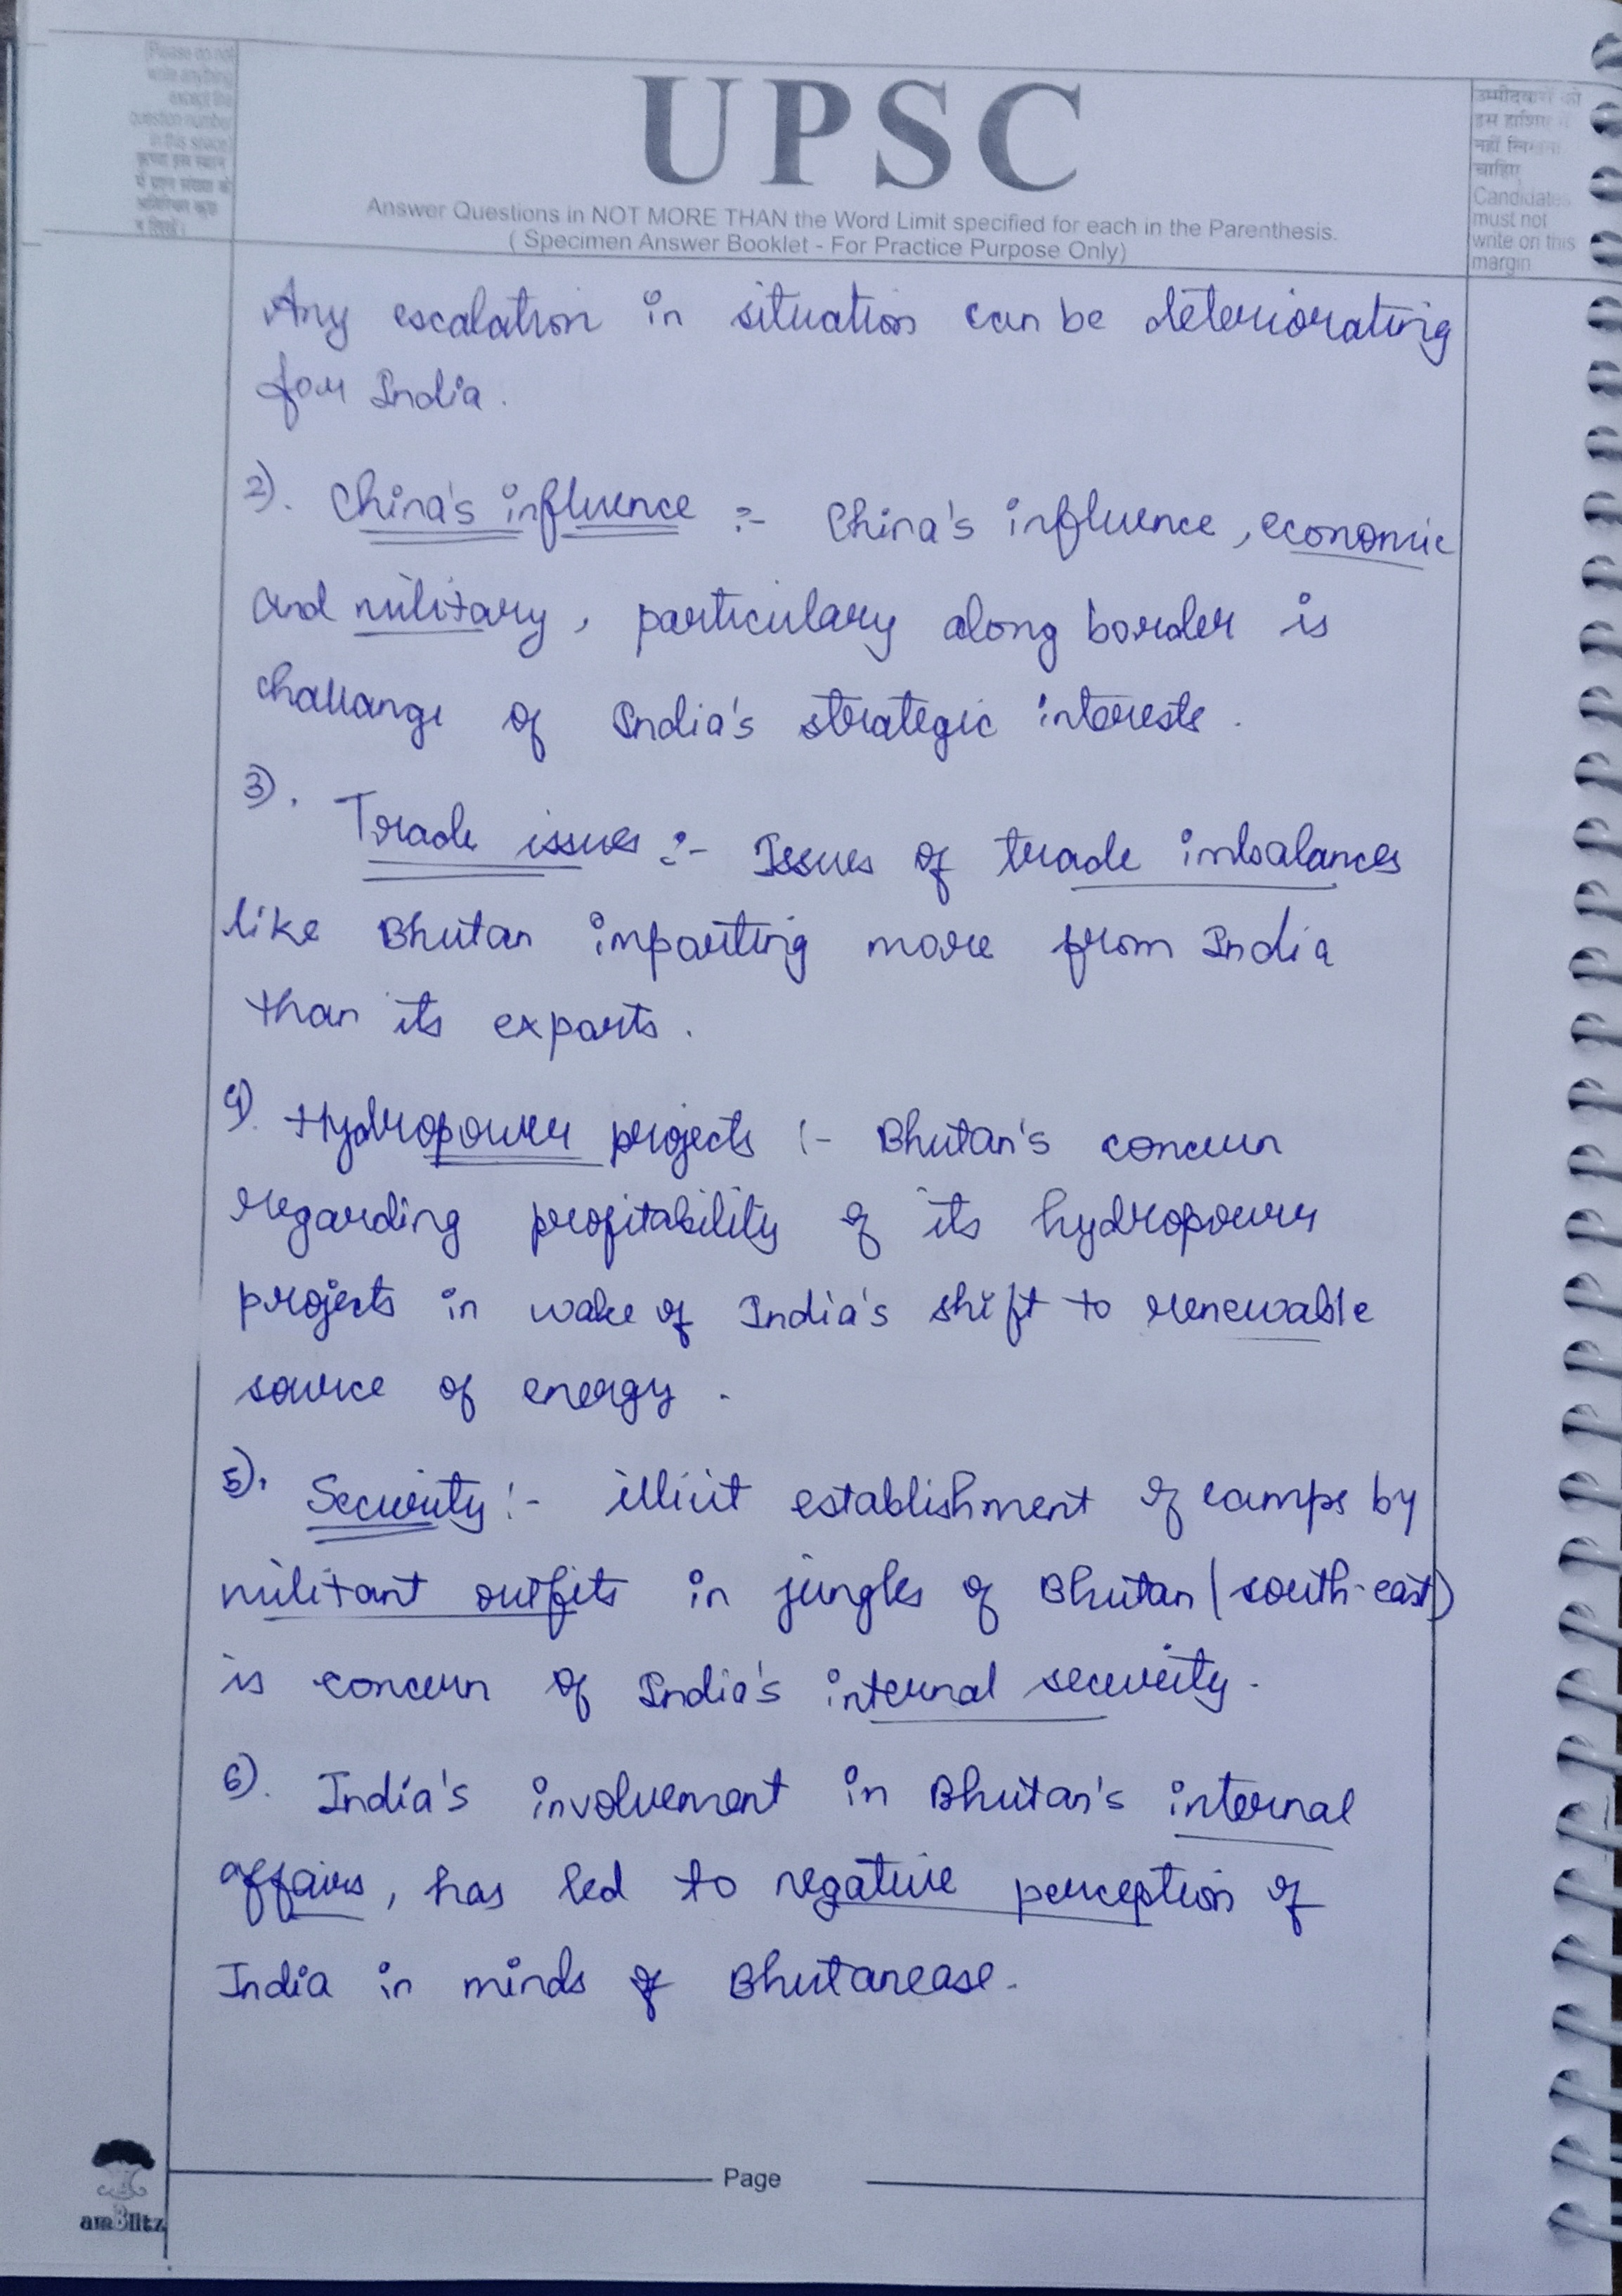 (Please do not
write anything
except the
question number
in this space)
कृपया इस स्थान
में प्रश्न संख्या के
अतिरिक्त कुछ
न लिखें।
UPSC
Answer Questions in NOT MORE THAN the Word Limit specified for each in the Parenthesis.
( Specimen Answer Booklet - For Practice Purpose Only)
उम्मीदवारों को
इस हाशिए में
नहीं लिखना
चाहिए
Candidates
must not
write on this
margin
Any escalation in situation can be deteriorating
for India.
2). China's influence :- China's influence, economic
and military, particulary along border is
challange of India's strategic interests.
3). Trade issues :- Issues of trade imbalances
like Bhutan importing more from India
than its exports.
4). Hydropower projects :- Bhutan's concern
regarding profitability of its hydropower
projects in wake of India's shift to renewable
source of energy.
5). Security :- illicit establishment of camps by
militant outfits in jungles of Bhutan (south-east)
is concern of India's internal security.
6). India's involvement in Bhutan's internal
affairs, has led to negative perception of
India in minds of Bhutanease.
Page